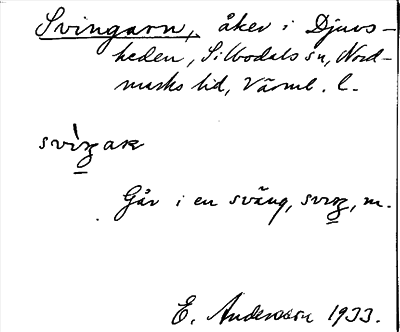 Svingarn, åker i Djurs-
heden, Silbodals sn, Nord-
marks hd, Värml. l.
svìŋ ar
Går i en sväng, sviŋ, m.
E. Andersson 1933.